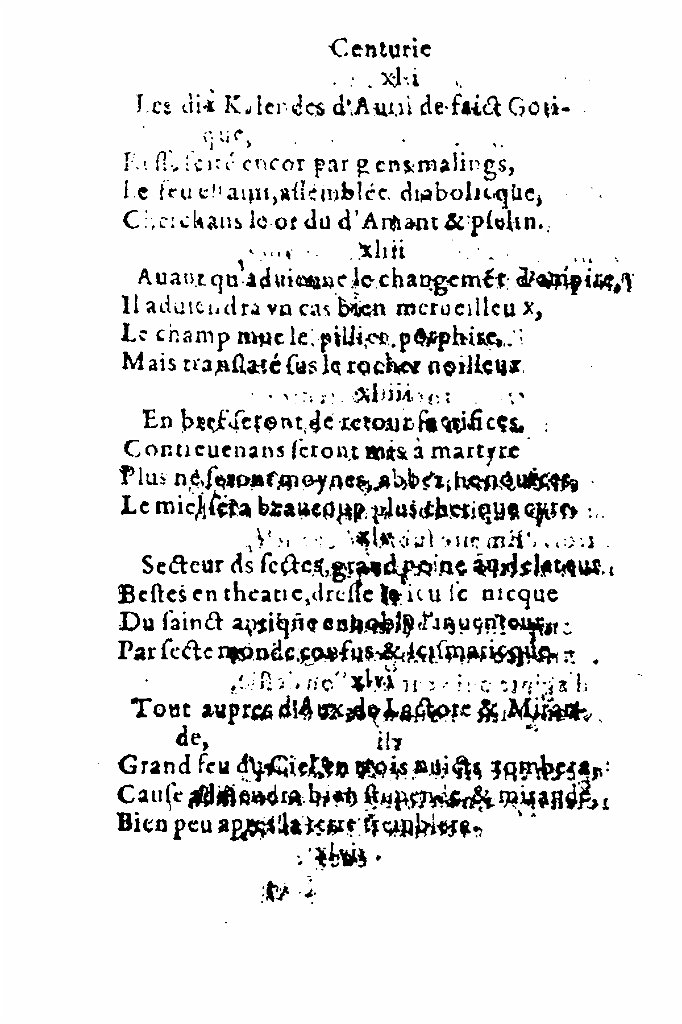 Centurie
xlii
Les dix Kalendes d'Auril de faict Goti-
que,
encor par gens malings,
Le feu estaint, assemblée diabolicque,
Cherchans le or du d'Amant & Pselin.
xliii
Auant qu'aduienne le changemét d'empire,
Il aduiendra vn cas bien merueilleux,
Le champ mue le pillier, porphire,
Mais translaté sus le rocher noilleux
xliiii
En bref seront de retour sacrifices,
Contreuenans seront mis à martyre
Plus ne seront moynes, abbez,
Le miel sera beaucoup plus cher que cire
xlv
Secteur ds sectes, grand peine au delateur
Bestes en theatre, dresse le ieu scenicque
Du sainct antique ennobly l'inuenteur,
Par secte monde confus & scismaticque
xlvi
Tout aupres d'Aux, de Lectore & Miran-
de,
Grand feu du Ciel en trois nuicts tombera,
Cause aduiendra bien stupende & mirande,
Bien peu apres la terre tremblera.
xlvii